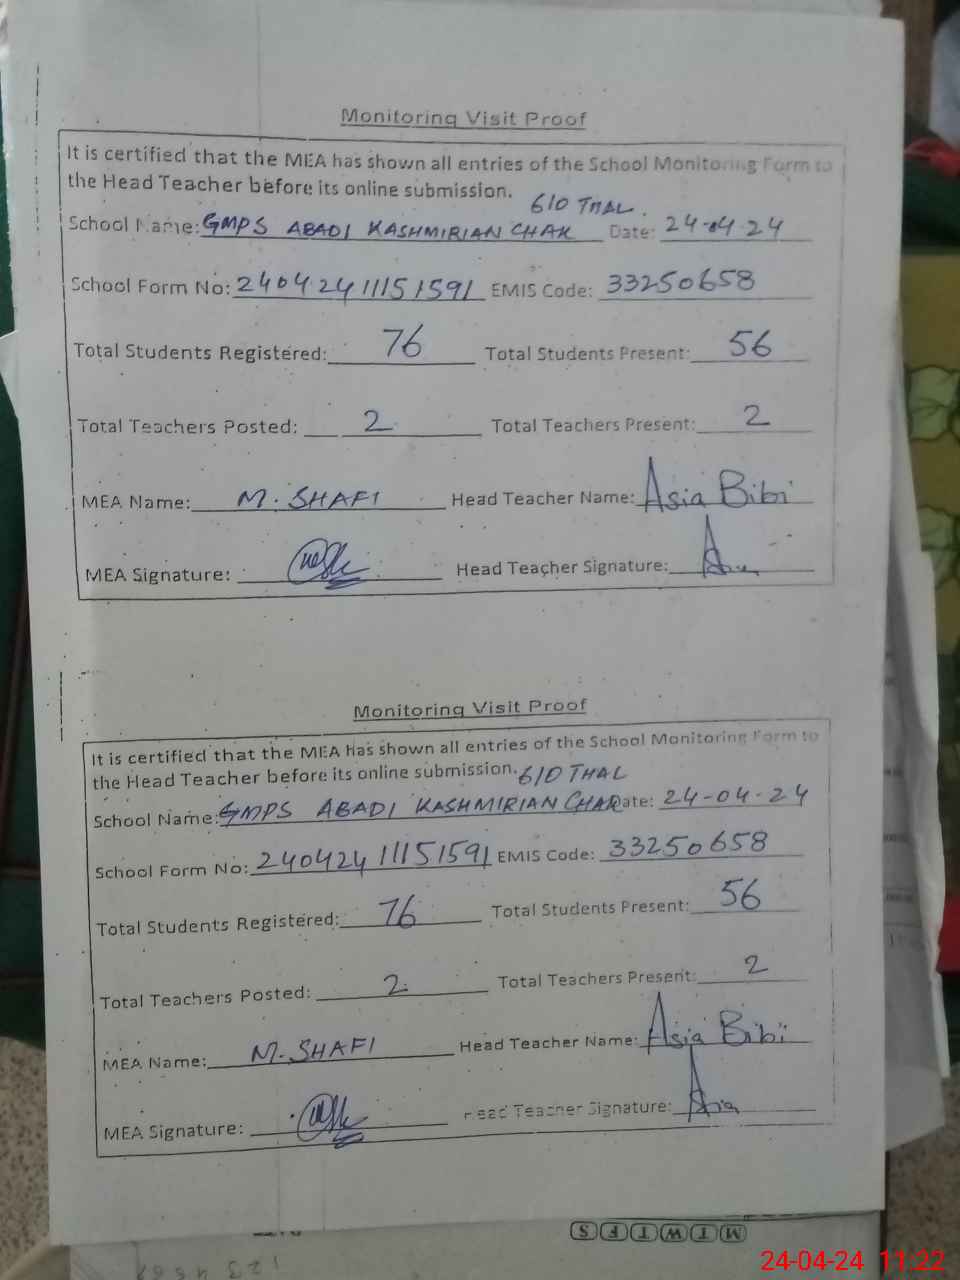 Monitoring Visit Proof
It is certified that the MEA has shown all entries of the School Monitoring Form to
the Head Teacher before its online submission.
610 THAL.
School Name: GMPS ABADI KASHMIRIAN CHAK Date: 24-04-24
School Form No: 24042411151591 EMIS Code: 33250658
Total Students Registered: 76 Total Students Present: 56
Total Teachers Posted: 2 Total Teachers Present: 2
MEA Name: M. SHAFI Head Teacher Name: Asia Bibi
MEA Signature: Head Teacher Signature:
Monitoring Visit Proof
It is certified that the MEA has shown all entries of the School Monitoring Form to
the Head Teacher before its online submission. 610 THAL
School Name: GMPS ABADI KASHMIRIAN CHAK Date: 24-04-24
School Form No: 24042411151591 EMIS Code: 33250658
Total Students Registered: 76 Total Students Present: 56
Total Teachers Posted: 2 Total Teachers Present: 2
MEA Name: M. SHAFI Head Teacher Name: Asia Bibi
MEA Signature: Head Teacher Signature: Asia
M T W T F S
24-04-24 11:22